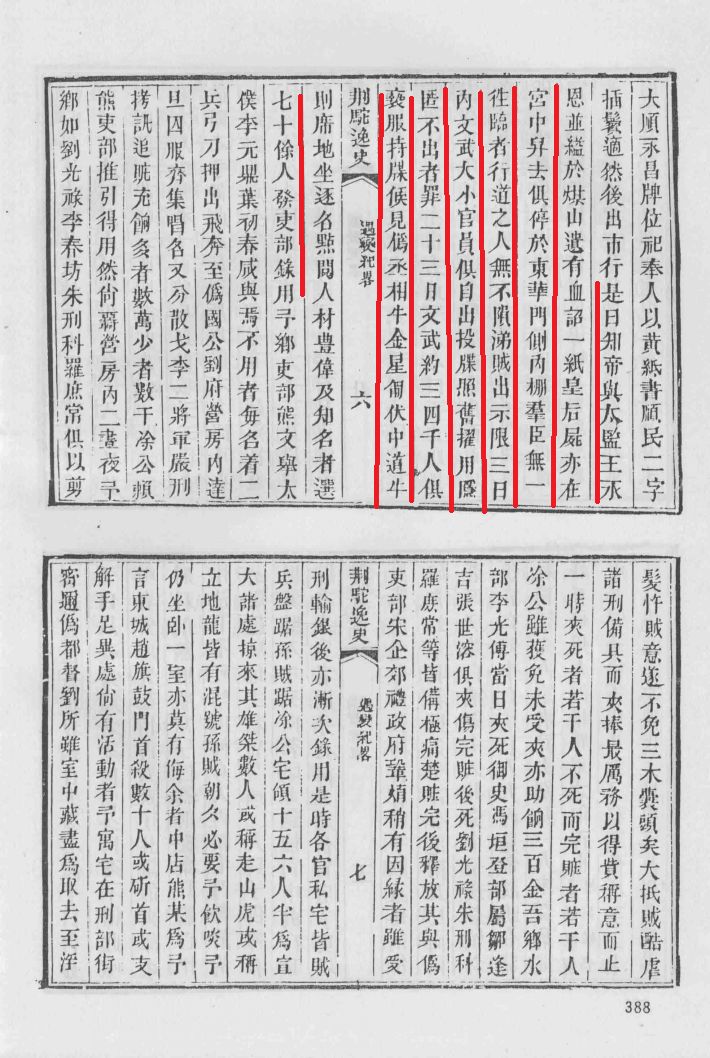 大順永昌牌位祀奉人以黃紙書順民二字
插鬢邊然後出市行是日知帝與太監王承
恩並縊於煤山遺有血詔一紙皇后屍亦在
宮中舁去俱停於東華門側內棚羣臣無一
往臨者行道之人無不隕涕賊出示限三日
內文武大小官員俱自出投牒照舊擢用隱
匿不出者罪二十三日文武約三四千人俱
褻服持牒候見僞丞相牛金星匍伏中道牛
荆駝逸史
遇變紀畧
六
則席地坐逐名點閱人材豊偉及知名者選
七十餘人發吏部錄用予鄉吏部熊文舉太
僕李元鼎葉初春咸與焉不用者每名着二
兵弓刀押出飛奔至僞國公劉府營房內達
旦囚服齊集唱名又分散戈李二將軍嚴刑
拷訊追賍充餉多者數萬少者數千凃公賴
熊吏部推引得用然尙覊營房內二晝夜予
鄉如劉光祿李春坊朱刑科羅庶常俱以剪
髮忤賊意遂不免三木囊頭矣大抵賊酷虐
諸刑備具而夾捧最厲務以得貲稱意而止
一時夾死者若干人不死而完賍者若干人
凃公雖獲免未受夾亦助餉三百金吾鄉水
部李光傅當日夾死御史馮垣登部屬鄒逢
吉張世濬俱夾傷完賍後死劉光祿朱刑科
羅庶常等皆備極痛楚賍完後釋放其與僞
吏部宋企郊禮政府鞏焴稍有因緣者雖受
荆駝逸史
遇變紀畧
七
刑輸銀後亦漸次錄用是時各官私宅皆賊
兵盤踞孫賊踞凃公宅領十五六人半爲宣
大諸處掠來其雄桀數人或稱走山虎或稱
立地龍皆有混號孫賊朝夕必要予飮啖予
仍坐卧一室亦莫有侮余者中店熊某爲予
言東城趙旗鼓門首殺數十人或斫首或支
解手足異處尙有活動者予寓宅在刑部街
密邇僞都督劉所雖室中藏盡爲取去至淫
388